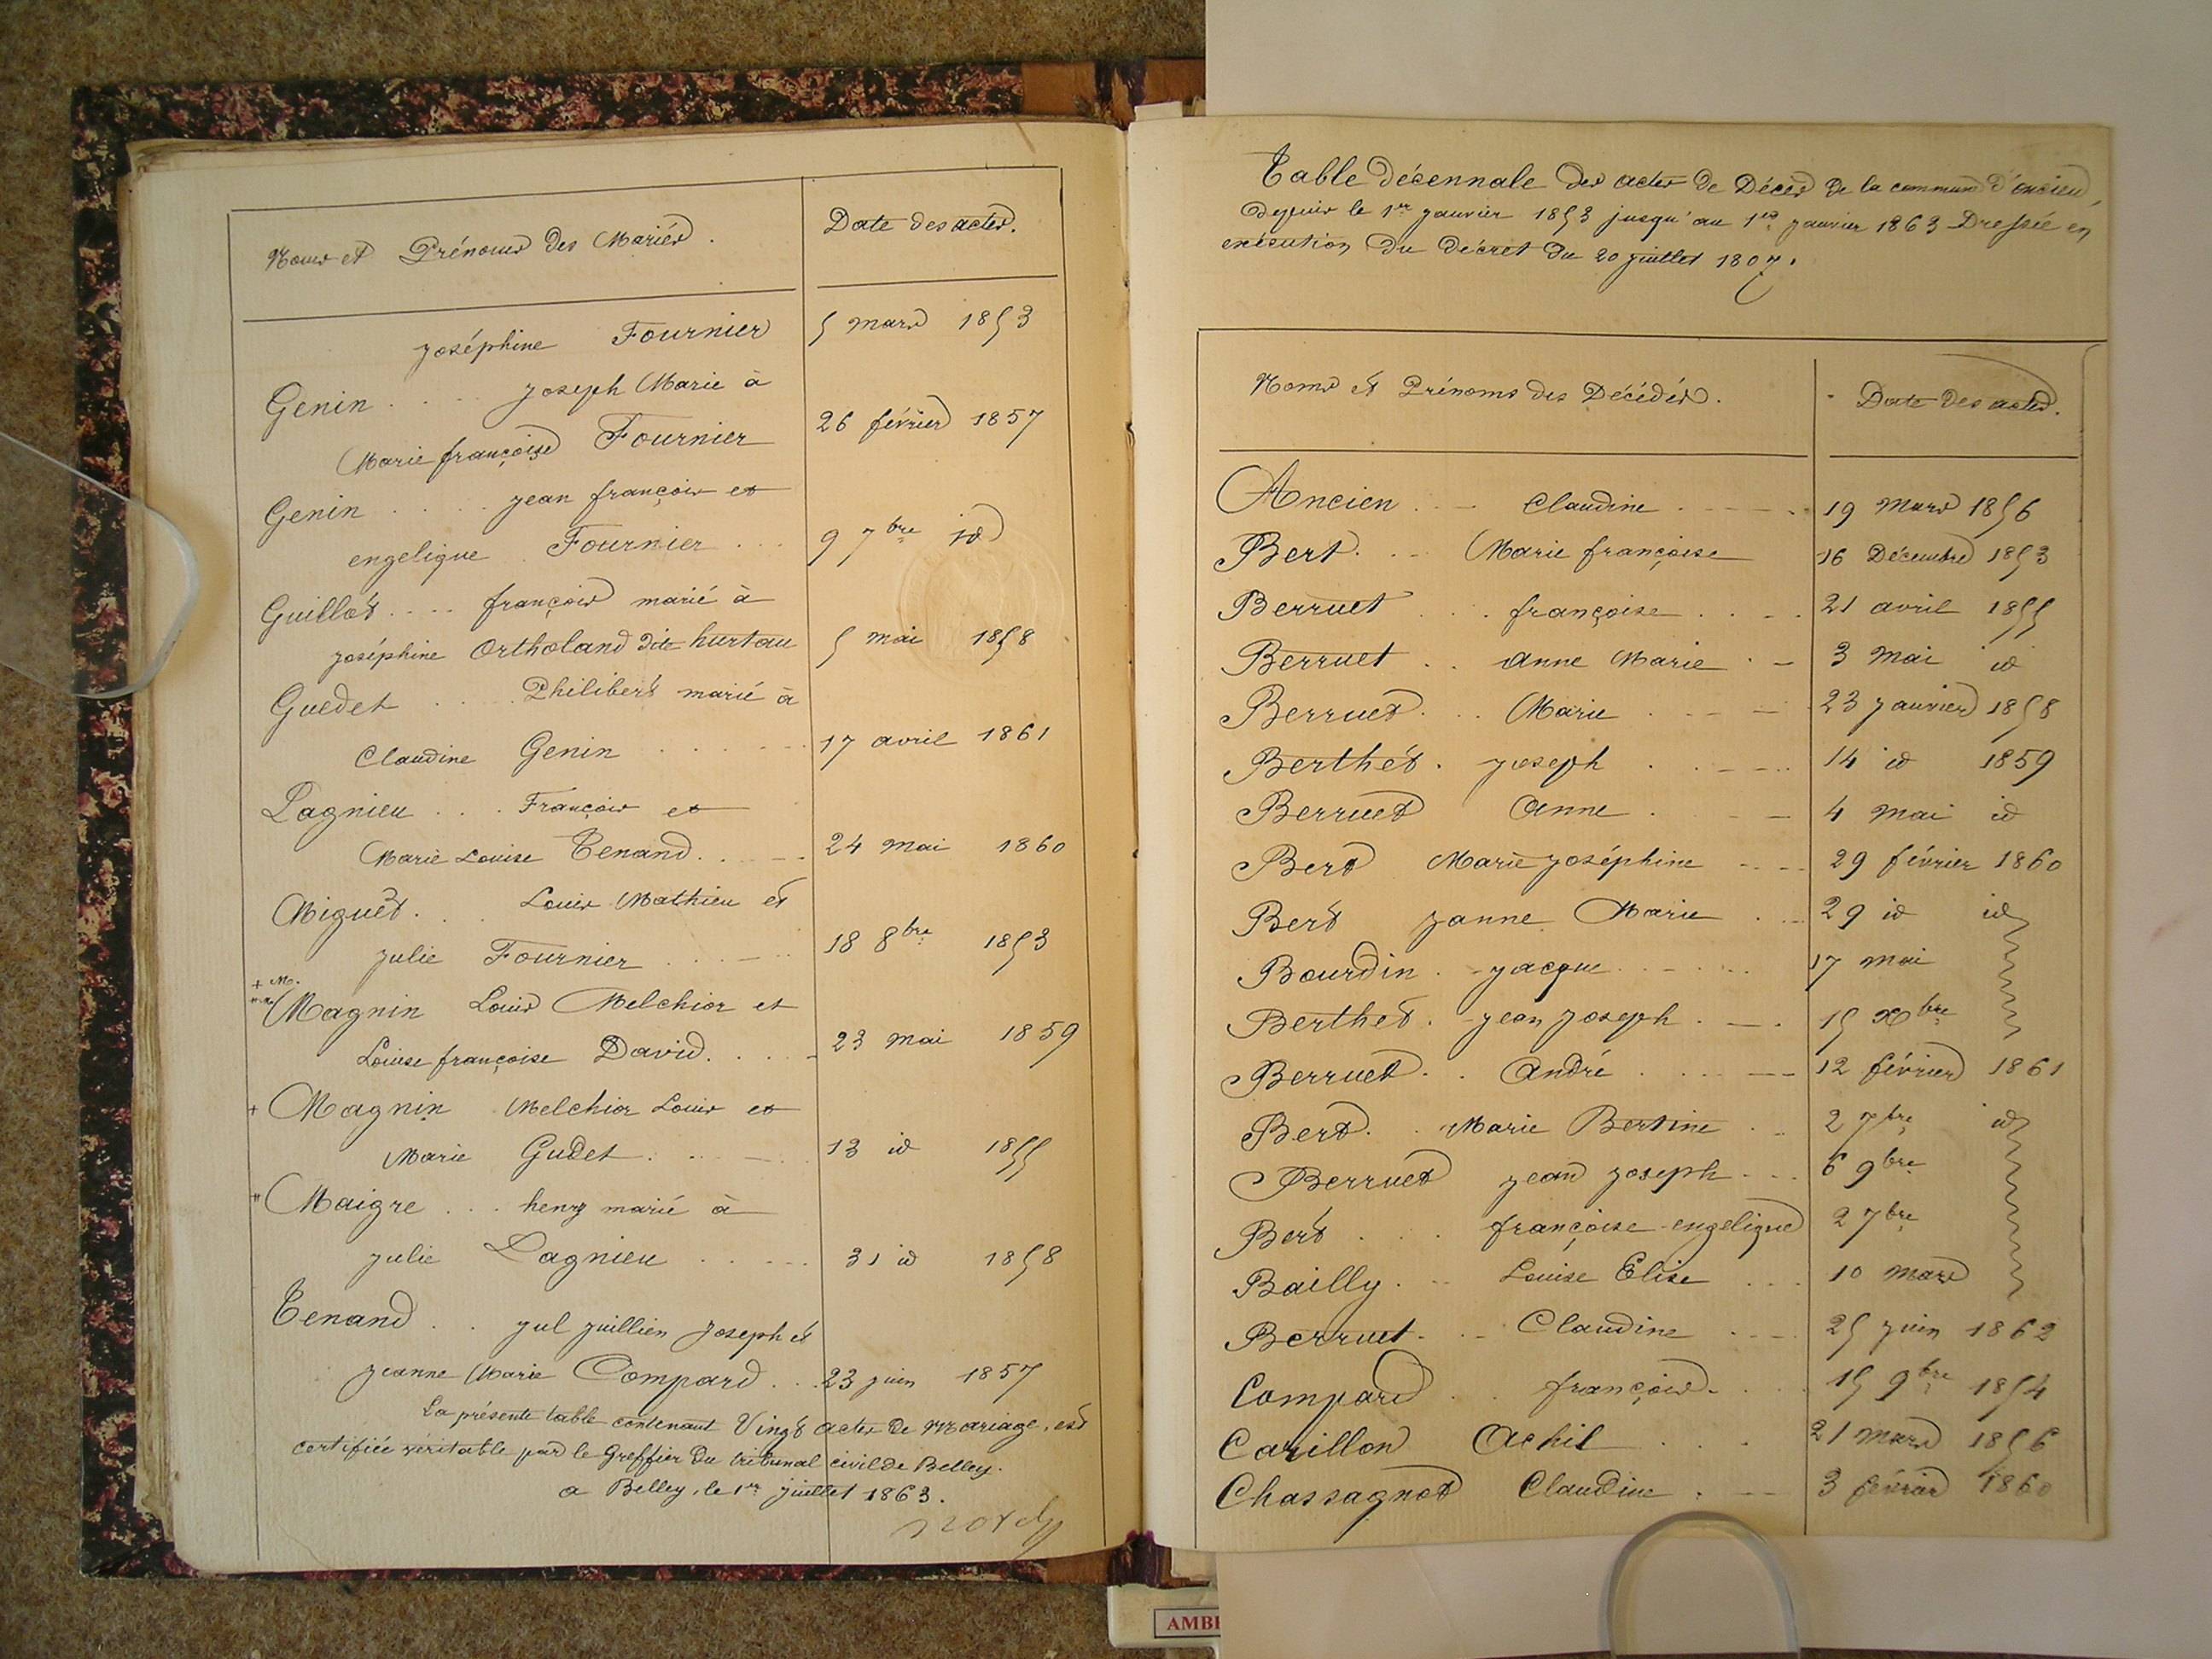 Noms et Prénoms des Mariés.
Date des actes.
joséphine Fournier 5 mars 1853
Genin .... joseph Marie à
Marie françoise Fournier 26 février 1857
Genin .... jean françois et
engelique Fournier ... 9 7bre id
Guillot .... françois marié à
joséphine Ortholand dite hurtau 5 mai 1858
Guedet .... Philibert marié à
Claudine Genin ...... 17 avril 1861
Lagnieu ... François et
Marie Louise Tenand .... 24 mai 1860
Miguet ... Louis Mathieu et
julie Fournier .... 18 8bre 1853
+ M.
Magnin Louis Melchior et
Louise françoise David .... 23 mai 1859
+ Magnin Melchior Louis et
Marie Gudet .... 13 id 1855
Maigre ... henry marié à
julie Lagnieu .... 31 id 1858
Tenand .. jul juillien joseph et
jeanne Marie Compard .. 23 juin 1857
La présente table contenant Vingt actes de Mariage, est
certifiée véritable par le Greffier du tribunal civil de Belley.
a Belley, le 1er juillet 1863.
Table décennale des actes de Décès de la commune d'oncieu,
depuis le 1er janvier 1853 jusqu'au 1er janvier 1863 Dressée en
exécution du décret du 20 juillet 1807.
Noms et Prénoms des Décédés.
Date des actes.
Ancien ... Claudine .... 19 mars 1856
Bert ... Marie françoise 16 Décembre 1853
Berruet ... françoise .... 21 avril 1855
Berruet .. anne Marie . - 3 mai id
Berruet ... Marie .... 23 janvier 1858
Berthet . joseph .... 14 id 1859
Berruet Anne . - 4 mai id
Bert Marie joséphine .... 29 février 1860
Bert janne Marie ... 29 id id
Bourdin . jacque .... 17 mai
Berthet . jean joseph . - . 15 Xbre
Berruet .. André .... 12 février 1861
Bert .. Marie Bertine .. 2 7bre id
Berruet jean joseph ... 6 9bre
Bert ... françoise engelique 2 7bre
Bailly . - Louise Elise ... 10 mars
Berruet . - Claudine ... 25 juin 1862
Compard .. françois .... 15 9bre 1854
Carillon Achil .... 21 mars 1856
Chassagnot Claudine . - 3 février 1860
AMBE